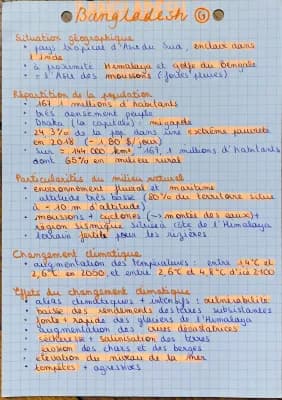 Bangladesh G
Situation géographique
• pays tropical d'Asie du Sud, enclavé dans
l'Inde
• à proximité Himalaya et golfe du Bengale
• = l'Asie des moussons (fortes pluies)
Répartition de la population
• 167,1 millions d'habitants
• très densément peuplé
• Dhaka (la capitale) : mégapole
• 24,3% de la pop dans une extrême pauvreté
en 2018 (- 1,80 $/jour)
• sur = 144 000 km², 167,1 millions d'habitants
dont 65% en milieu rural
Particularités du milieu naturel
• environnement fluvial et maritime
• altitude très basse (80% du territoire situé
à - 10 m d'altitude)
• moussons + cyclones (→ montée des eaux) +
région sismique située à côté de l'Himalaya
• terrain fertile pour les rizières
Changement climatique
• augmentation des températures : entre 1,4°C et
2,6°C en 2050 et entre 2,6°C et 4,8°C d'ici 2100
Effets du changement climatique
• aléas climatiques + intensifs : vulnérabilité
• baisse des rendements des terres subsistantes
• fonte + rapide des glaciers de l'Himalaya
• augmentation des crues dévastatrices
• sécheresse + salinisation des terres
• érosion des chars et des berges
• élévation du niveau de la mer
• tempêtes + agressives